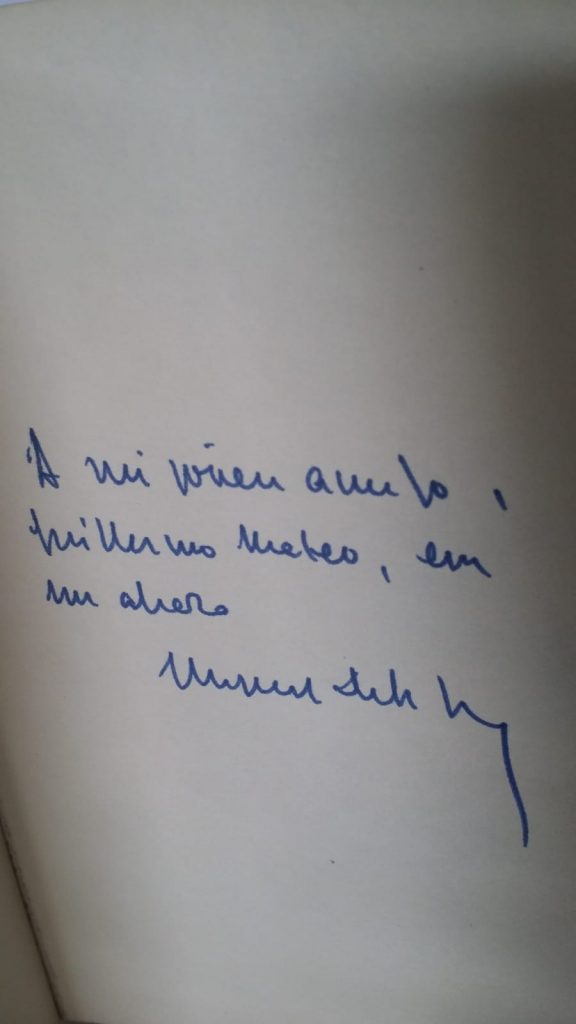 A mi joven amigo,
Guillermo Mateo, con
un abrazo
Miguel Delibes